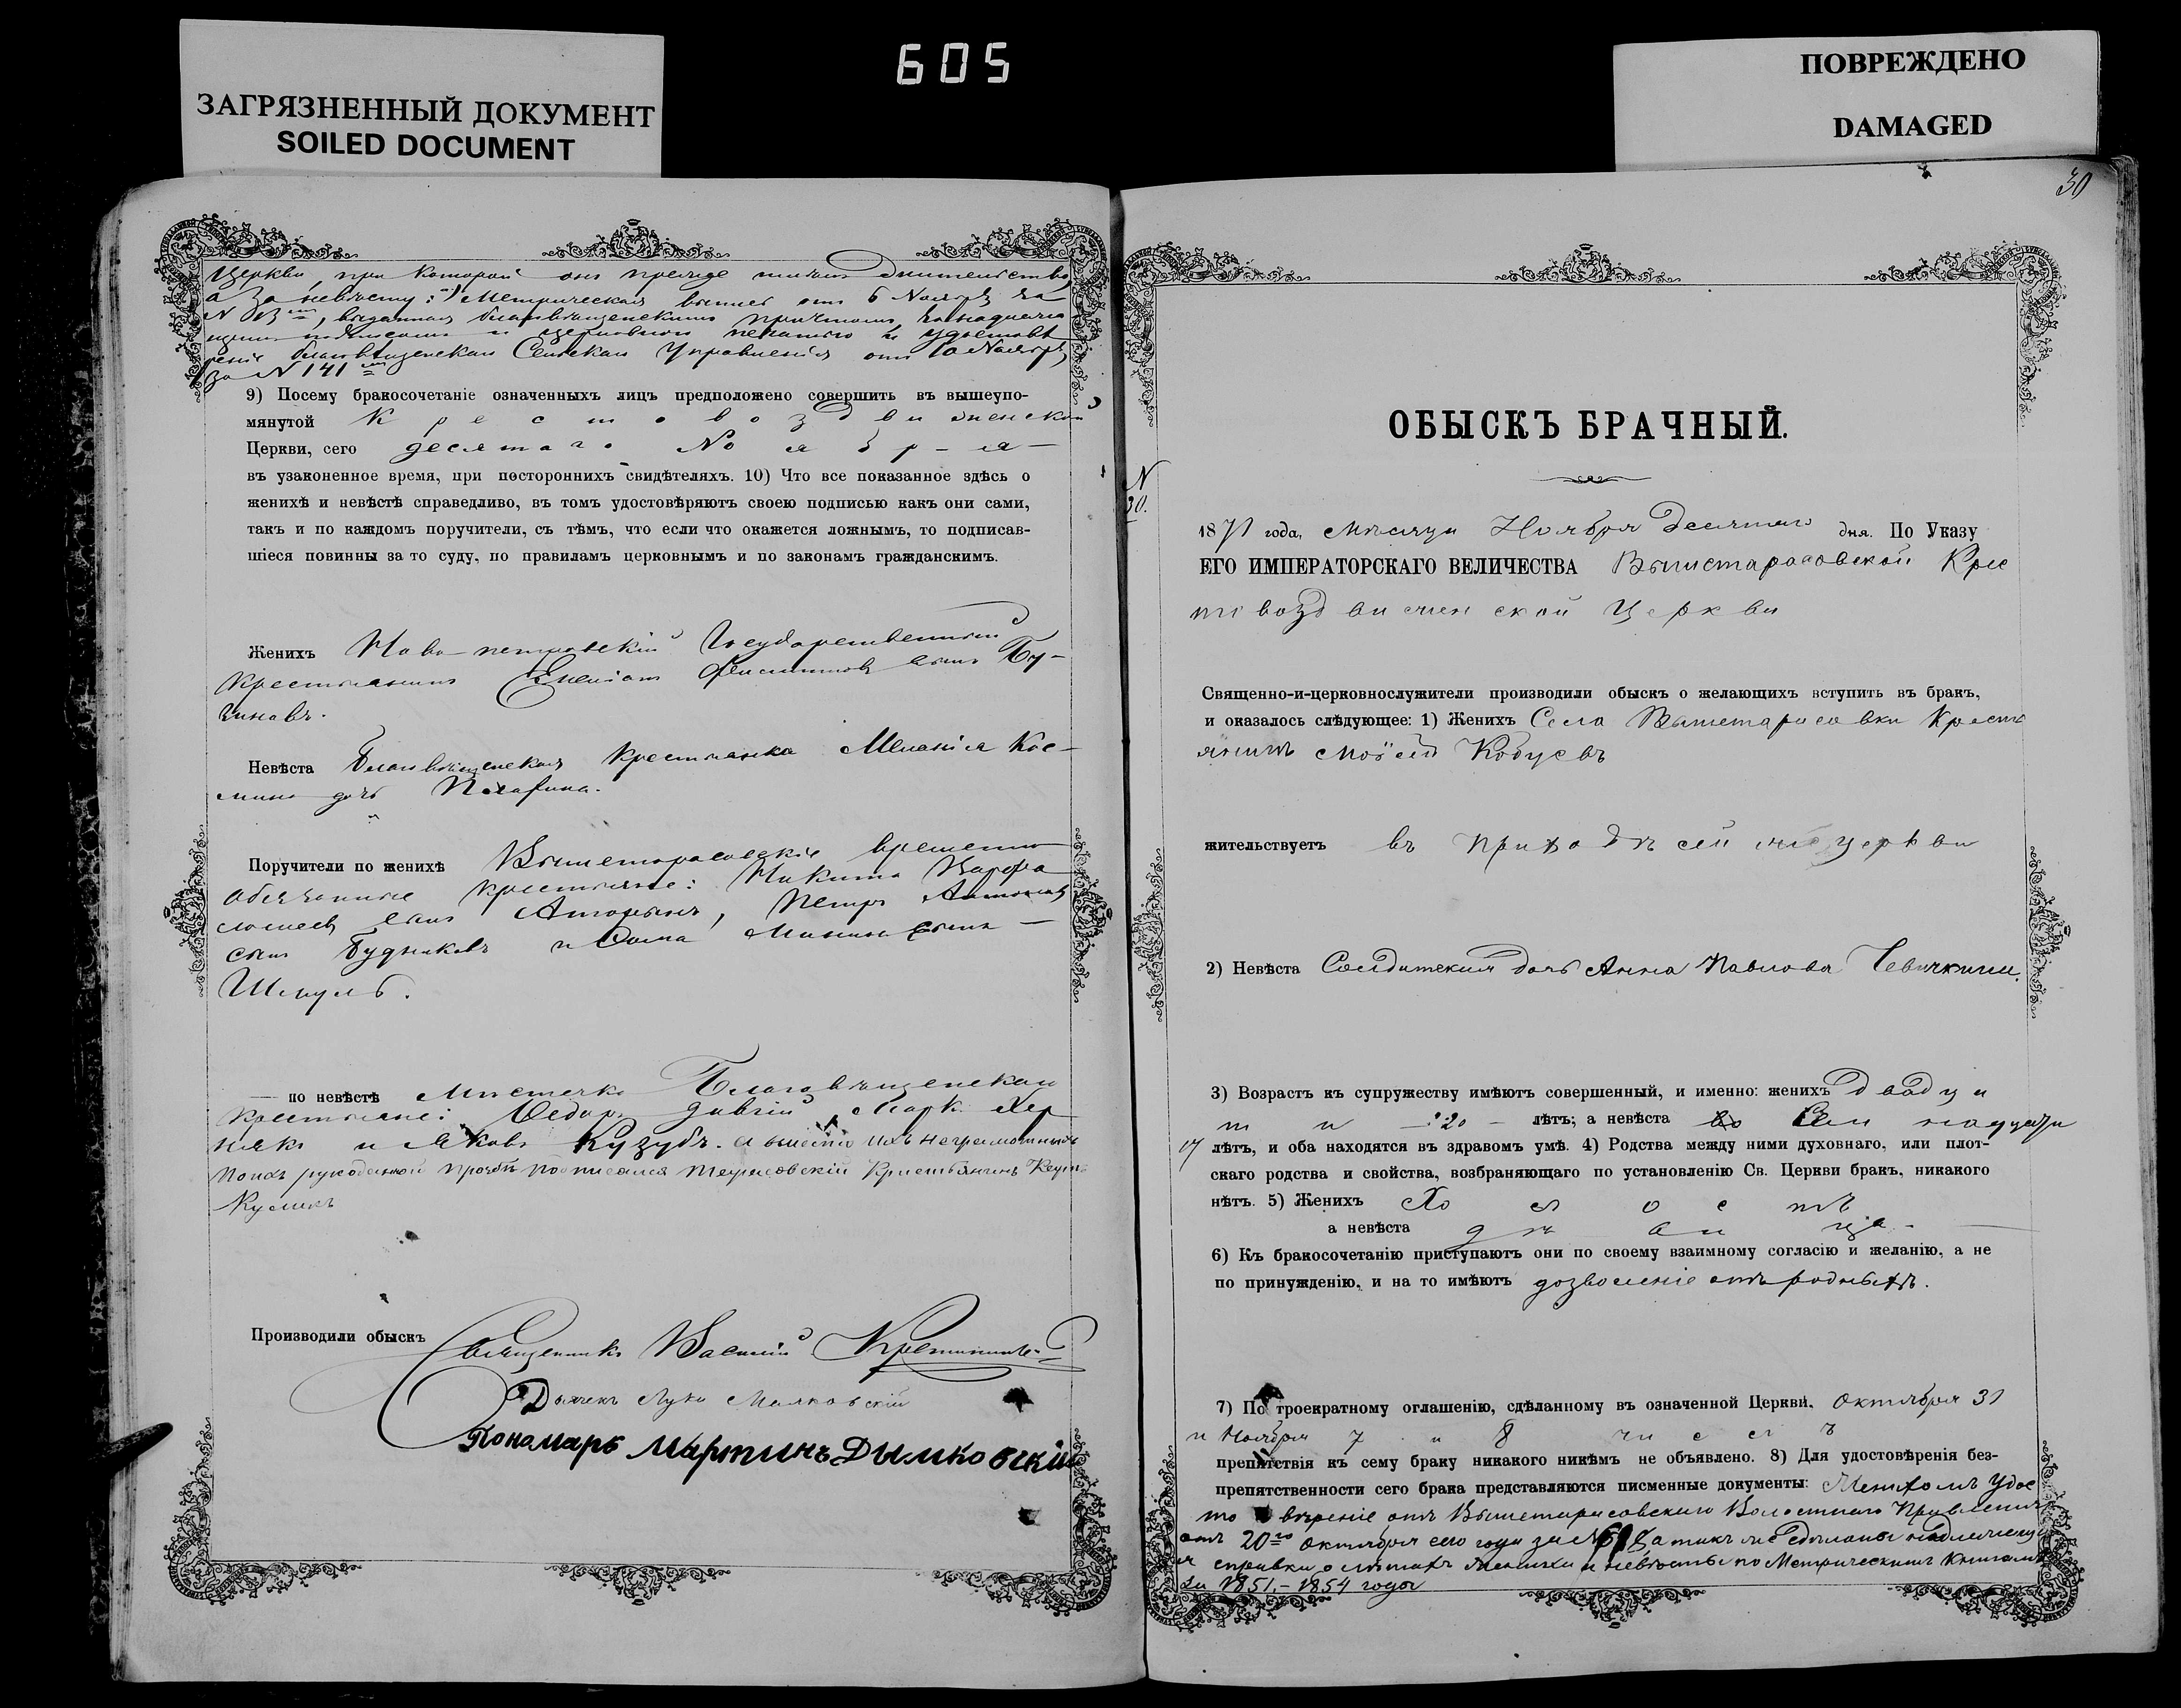 605
ЗАГРЯЗНЕННЫЙ ДОКУМЕНТ
SOILED DOCUMENT
ПОВРЕЖДЕНО
DAMAGED
Церкви, при которой онъ прежде
а за невѣсту: Метрическая выпись отъ 6 Ноября за
N, выданная благовѣщенскимъ причтомъ за
и церковною печатью и удостовѣ
реніе благовѣщенскаго Сельскаго Управленія отъ 10 Ноября
за N 141
9) Посему бракосочетаніе означенныхъ лицъ предположено совершить въ вышеупо-
мянутой Крестовоздвиженской
Церкви, сего десятаго Ноября
въ узаконенное время, при постороннихъ свидѣтеляхъ. 10) Что все показанное здѣсь о
женихѣ и невѣстѣ справедливо, въ томъ удостовѣряютъ своею подписью какъ они сами,
такъ и по каждомъ поручители, съ тѣмъ, что если что окажется ложнымъ, то подписав-
шіеся повинны за то суду, по правиламъ церковнымъ и по законамъ гражданскимъ.
Женихъ Ново-петровскій Государственный
крестьянинъ сынъ Бу-
Невѣста Благовѣщенская крестьянка Меланія Кос-
мина дочь
Поручители по женихѣ Вышетарасовскіе временно
обязанные крестьяне: Никита Варфо
ломеевъ сынъ, Петръ Антоновъ
сынъ Будниковъ и Фома сынъ
Шкуль.
по невѣстѣ Мистечка Благовѣщенскаго
крестьяне: Федоръ Довгій, Марк
и Яковъ Кузубъ. а вмѣсто ихъ неграмотныхъ
по ихъ рукоданной прозьбѣ росписался Тарасовскій Крестьянинъ
Куликъ
Производили обыскъ Священникъ Василій
Дьячекъ Лука Малковскій
Пономарь Мартинъ Дымковскій
30
ОБЫСКЪ БРАЧНЫЙ.
N
30.
1871 года, Мѣсяца Ноября Десятаго дня. По Указу
ЕГО ИМПЕРАТОРСКАГО ВЕЛИЧЕСТВА Вышетарасовской Крес
товоздвиженской Церкви
Священно-и-церковнослужители производили обыскъ о желающихъ вступить въ бракъ,
и оказалось слѣдующее: 1) Женихъ Села Вышетарасовки Крестъ
янинъ Моїсей Кобусвъ
жительствуетъ въ приходѣ сей же церкви
2) Невѣста Солдатская дочь Анна Павлова Чевычкина.
3) Возрастъ къ супружеству имѣютъ совершенный, и именно: женихъ двадца
ти 20 лѣтъ; а невѣста Семнадцати
17 лѣтъ, и оба находятся въ здравомъ умѣ. 4) Родства между ними духовнаго, или плот-
скаго родства и свойства, возбраняющаго по установленію Св. Церкви бракъ, никакого
нѣтъ. 5) Женихъ Холостъ
а невѣста дѣвица
6) Къ бракосочетанію приступаютъ они по своему взаимному согласію и желанію, а не
по принужденію, и на то имѣютъ дозволеніе отъ родныхъ.
7) По троекратному оглашенію, сдѣланному въ означенной Церкви. Октября 31
и Ноября 7 и 8 числъ
препятствія къ сему браку никакого никѣмъ не объявлено. 8) Для удостовѣренія без-
препятственности сего брака представляются писменные документы: Женихомъ Удос
товѣреніе отъ Вышетарасовскаго Волостнаго Правленія
отъ 20го Октября сего года за N а также сдѣланы надлежащи
я справки о лѣтахъ жениха и невѣсты по Метрическимъ Книгамъ
за 1851-1854 годы